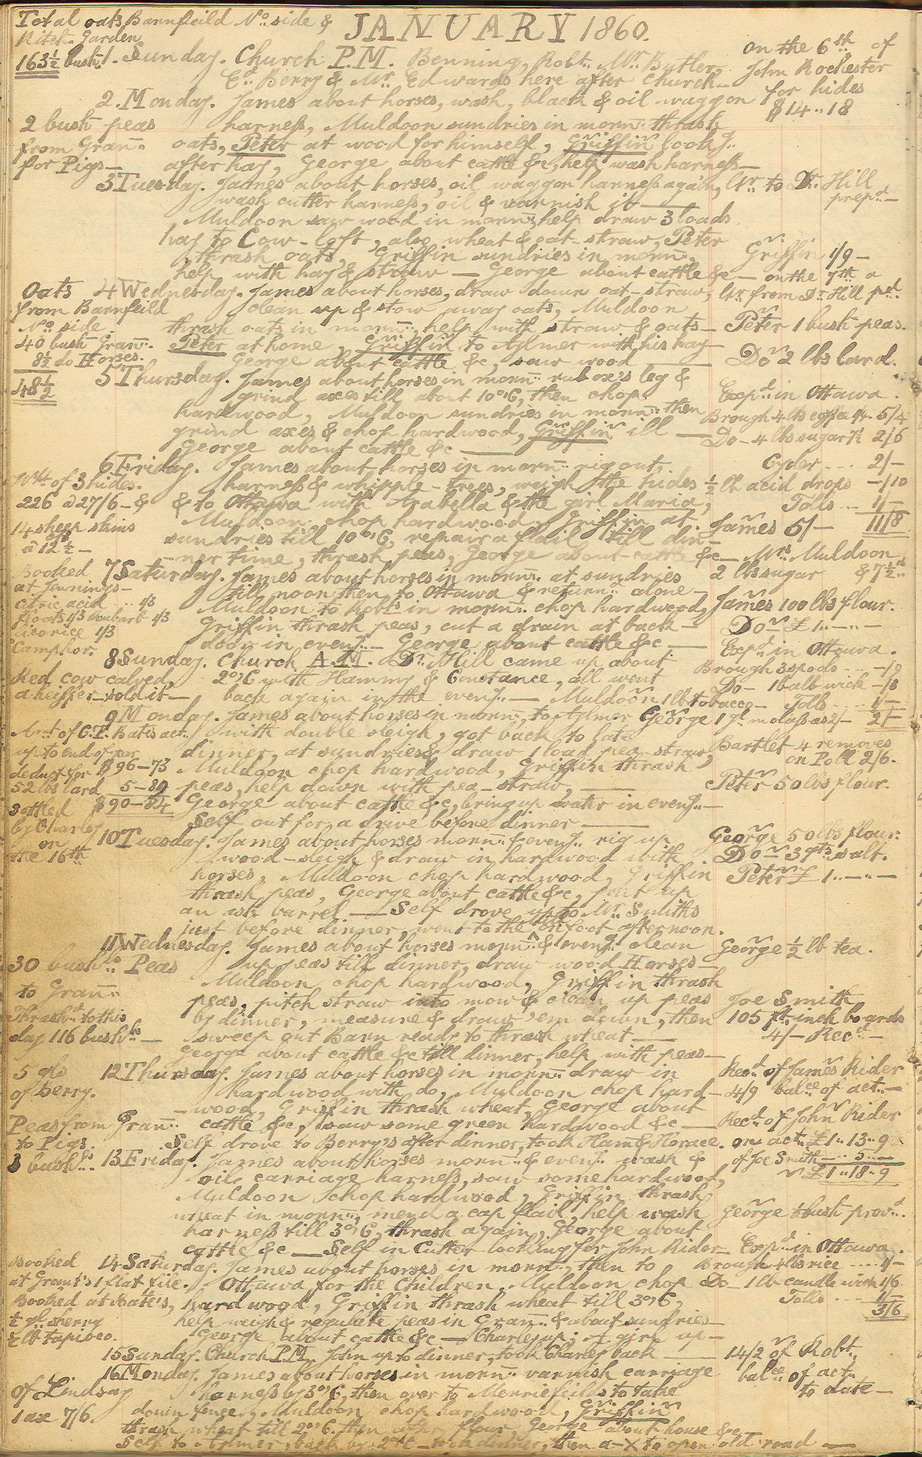 Total oats Barnfeild No. side &
Kitch. Garden
163½ bush.
JANUARY 1860.
1. Sunday. Church P.M. Benning, Robt. Mr. Butler,
E. Berry & Mr. Edwards here after church—
on the 6th of
John Rochester
for hides
$14..18
2. Monday. James about horses, wash, black & oil waggon
harness, Muldoon sundries in morn: thrash
oats, Peter at wood for himself, Griffin look'g.
after hay, George about cattle &c, help wash harness—
2 bush peas
from Gran:
for Pigs—
3 Tuesday. James about horses, oil waggon harness again,
wash cutter harness, oil & varnish it—
Muldoon saw wood in morn: help draw 3 loads
hay to Cow-loft, also wheat & oat straw, Peter
thrash oats, Griffin sundries in morn:
help with hay & straw — George about cattle &c—
Lr. to Dr. Hill
prepd.—
Griffin 1/9—
on the 7th a
4 Wednesday. James about horses, draw down oat-straw,
clean up & stow away oats, Muldoon
thrash oats in morn: help with straw & oats—
Peter at home, Griffin to Aylmer with his hay
George about cattle &c, saw wood
Lr. from Dr. Hill pd.
Peter 1 bush peas.
Do 2 lbs lard.
Oats
from Barnfeild
No. side
40 bush Gran:
8½ do Horses.
48½
5 Thursday. James about horses in morn: rub ox's leg &
grind axes till about 10 o'c, then chop
hardwood, Muldoon sundries in morn: then
grind axes & chop hardwood, Griffin ill —
George about cattle &c —
Expd. in Ottawa.
Brough 4 lbs coffee 1/4 5/4
Do- 4 lbs sugar 7½ 2/6
Cyder ... 2/-
½ lb acid drops -/10
Tolls ... 1/-
11/8
6 Friday. James about horses in morn: rig out
harness & whipple-trees, weigh the hides
& to Ottawa with Arabella & the girl Maria,
Muldoon chop hardwood, Griffin at
sundries till 10 o'c, repair a flail till din-
ner time, thrash peas, George about cattle &c—
Wht. of 3 hides.
226 @ 27/6 - &
14 sheep skins
@ 12½—
James 5/-
Mrs. Muldoon
2 lbs sugar @ 7½
7 Saturday. James about horses in morn: at sundries
till noon then to Ottawa & return alone—
Muldoon to Robt. in morn: chop hardwood,
Griffin thrash peas, cut a drain at back-
door in eveng.— George about cattle &c—
Booked
at Jennings—
citric acid .. 1/3
liquorice 1/3
Camphor.
James 100 lbs flour.
Do £1..-..-
Expd. in Ottawa.
Brough 3 spools -/9
Do- 1 ball wick -/3
Tolls 1/-
2/-
8 Sunday. Church A.M. Dr. Hill came up about
2 o'c with Hammy & Constance, all went
back again in the eveng.— Muldoon 1 lb tobacco—
Red cow calved,
a heiffer—sold it—
9 Monday. James about horses in morn:, to Aylmer
with double sleigh, got back to late
dinner, at sundries & draw 1 load pea-straw,
Muldoon chop hardwood, Griffin thrash
peas, help down with pea-straw, —
George about cattle &c, bring up water in eveng.—
Self out for a drive before dinner —
Amt. of G.T. Bates act.
up to end of yer
$96-73
deduct for
52 lbs lard 5-89
$90-84
Settled
by Charley
on
the 16th
George 1 g. molasses 2/-
Bartlet 4 removes
on Poll 2/6.
Peter 50 lbs flour.
10 Tuesday. James about horses morn: & eveng. rig up
wood-sleigh & draw in hardwood with
horses, Muldoon chop hardwood, Griffin
thrash peas, George about cattle &c, put up
an ash barrel — Self drove up to Mr. Smiths
just before dinner, went to the on foot afternoon.
George 50 lbs flour.
Do 3 qts salt.
Peter £1..-..-
11 Wednesday. James about horses morn: & eveng. clean
up peas till dinner, draw wood Horses—
Muldoon chop hardwood, Griffin thrash
peas, pitch straw into mow & clean up peas
by dinner, measure & draw 'em down, then
sweep out Barn ready to thrash wheat —
George about cattle &c till dinner, help with peas—
30 bushls. Peas
to Gran:
Thrashd. to this
day 116 bushls—
George ½ lb tea.
Joe Smith
105 ft. inch boards
4/- Recd—
12 Thursday. James about horses in morn: draw in
hardwood with do, Muldoon chop hard-
wood, Griffin thrash wheat, George about
cattle &c, saw some green hardwood &c—
Self drove to Berry's after dinner, took Ham & Horace.
5
of Berry.
Peas from Gran:
to Pigs.
3 bushls.
Recd. of James Rider
4/9 balce. of act.—
Recd. of John Rider
on act. £1..13..9
of Joe Smith— .. 5..—
£1..18..9
13 Friday. James about horses morn: & eveng. wash &
oil carriage harness, saw some hardwood,
Muldoon chop hardwood, Griffin thrash
wheat in morn: mend a cap flail, help wash
harness till 3 o'c, thrash again, George about
cattle &c — Self in Cutter looking for John Rider—
George ½ bush prov.
14 Saturday. James about horses in morn:, then to
Ottawa for the Children, Muldoon chop
hardwood, Griffin thrash wheat till 3 o'c,
help weigh & regulate peas in Gran: & about sundries—
George about cattle &c — Charley up; girl up—
Booked
at Grant's 1 flat file.
Booked at Bate's,
½ gl. sherry
½ lb tapioco.
Expd. in Ottawa.
Brough 4 lbs rice .... 1/-
Do. 1 lb candle wick 1/6
Tolls 1/-
3/6
15 Sunday. Church P.M. John up to dinner, took Charley back
16 Monday. James about horses in morn: varnish carriage
harness by 3 o'c, then over to Merriefeild's to take
down fence, Muldoon chop hardwood, Griffin
thrash wheat till 2 o'c, then after flour, George about house &c,
Self to Aylmer, back by 2 o'c—took dinner, then a-X to open old road —
of Lindsay
1 axe 7/6.
14/2 of Robt.
balce. of act.
to date—